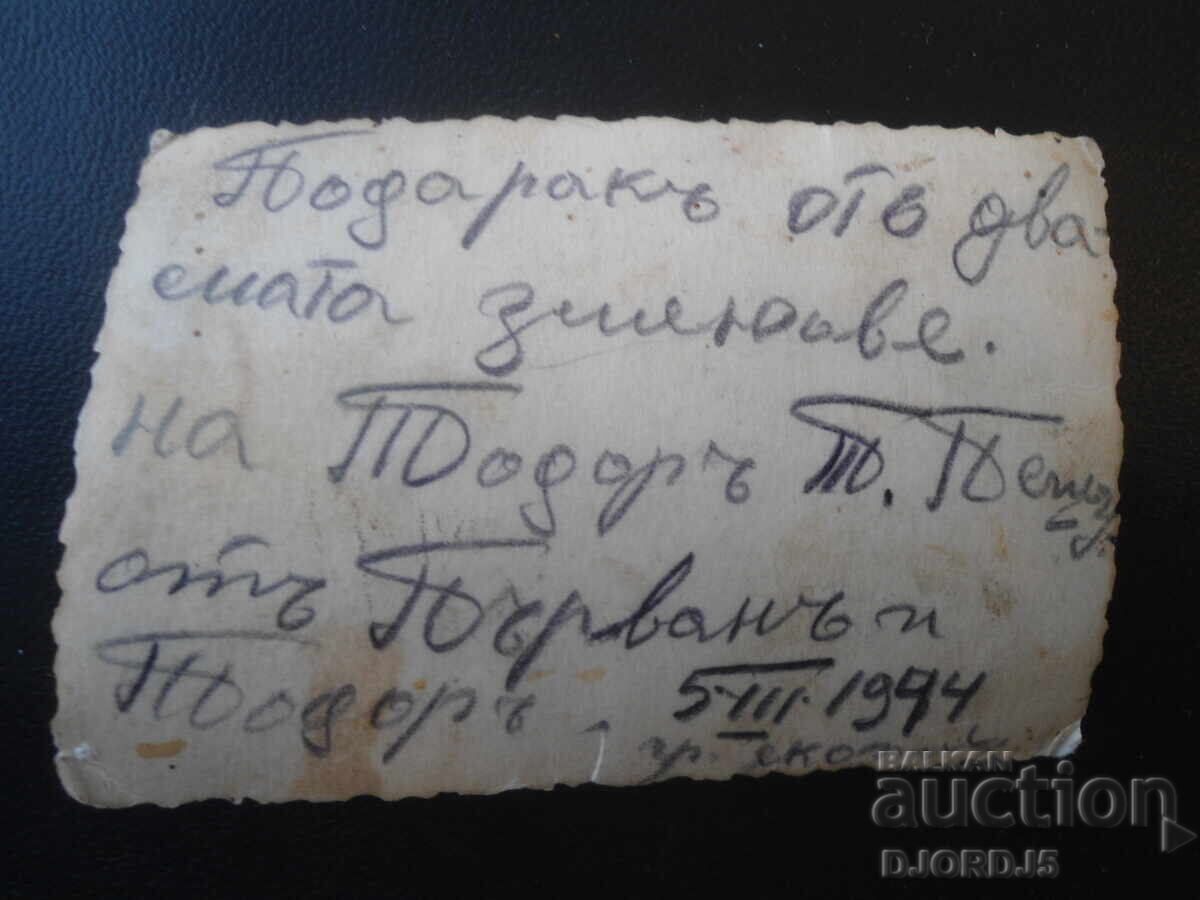 Подаракъ отъ два-
мата
на Тодоръ Т.
отъ Първанъ и
Тодоръ. 5-III-1944
гр.
BALKAN
auction
DJORDJ5